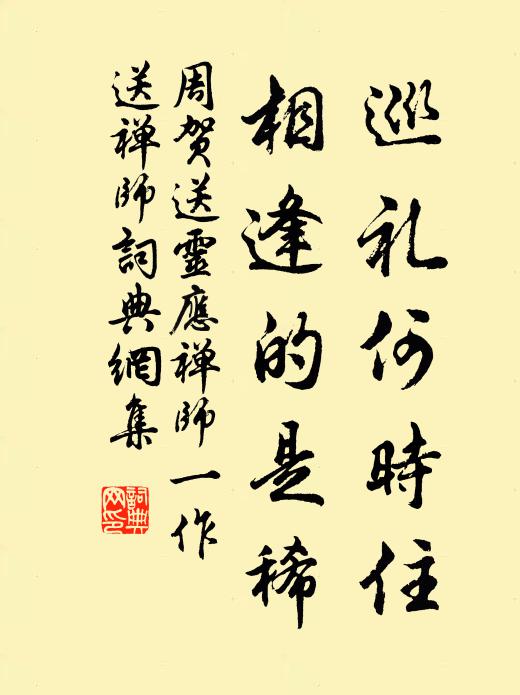 巡礼何時住
相逢的是稀
周贺送靈應禅師一作
送禅師詞典網集
詞典
网印